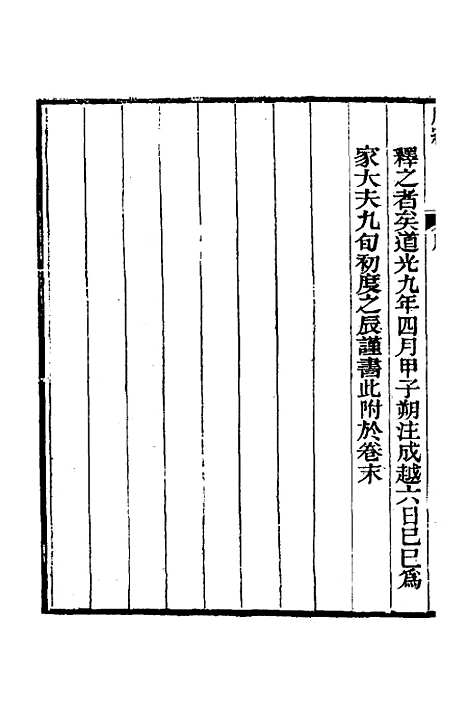 釋之者矣道光九年四月甲子朔注成越六日己巳爲
家大夫九旬初度之辰謹書此附於卷末